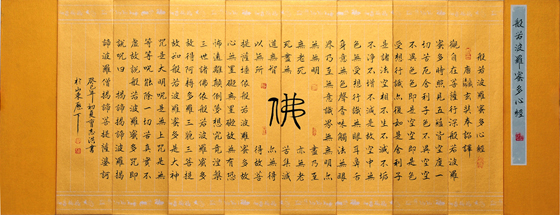 般若波羅蜜多心經
般若波羅蜜多心經
唐 玄奘奉詔譯
觀自在菩薩行深般若波羅
蜜多時照見五蘊皆空度一
切苦厄舍利子色不異空空
不異色色即是空空即是色
受想行識亦復如是舍利子
是諸法空相不生不滅不垢
不淨不增不減是故空中無
色無受想行識無眼耳鼻舌
身意無色聲香味觸法無眼
界乃至無意識界無無明亦
無無明 盡乃至
無老死 亦無老
死盡無 苦集滅
道無智 亦無得
以無所 得故菩
佛
提薩埵依般若波羅蜜多故
心無罣礙無罣礙故無有恐
怖遠離顛倒夢想究竟涅槃
三世諸佛依般若波羅蜜多
故得阿耨多羅三藐三菩提
故知般若波羅蜜多是大神
咒是大明咒是無上咒是無
等等咒能除一切苦真實不
虛故說般若波羅蜜多咒即
說咒曰 揭諦揭諦波羅揭
諦波羅僧揭諦菩提薩婆訶
癸巳年初夏 志洪書
於山東歷下